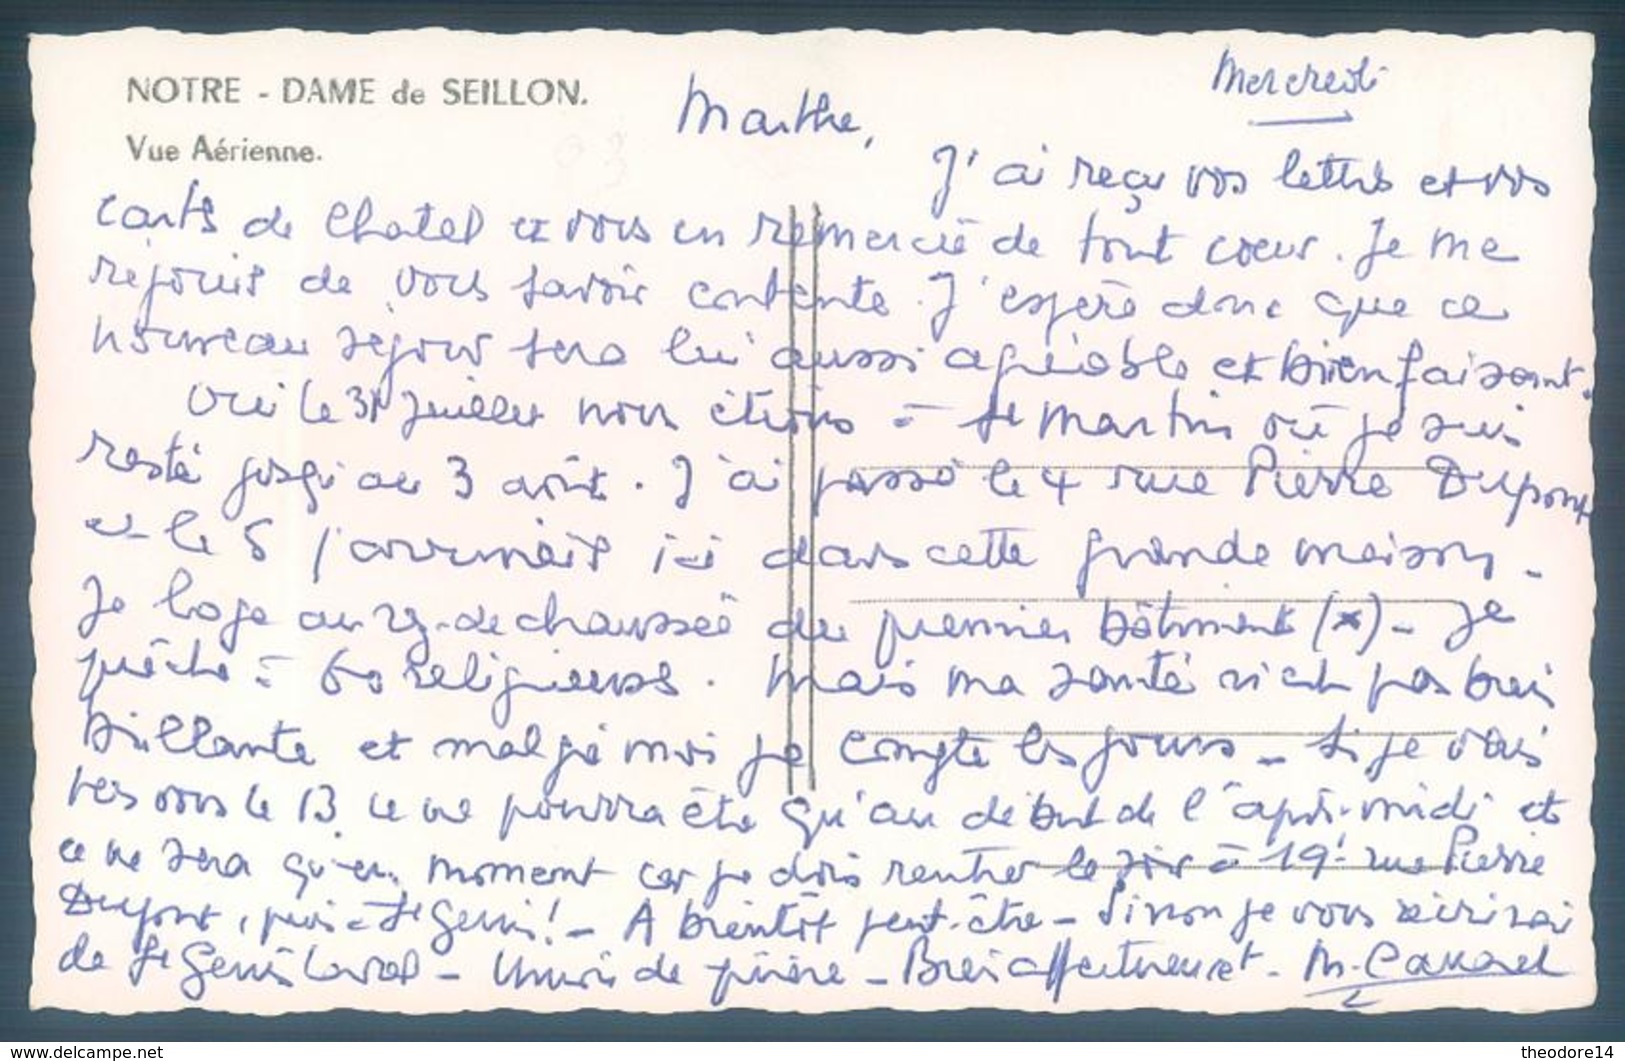 NOTRE - DAME de SEILLON.
Vue Aérienne.
Mercredi
Marthe,
J'ai reçu vos lettres et vos
cartes de Chatel et vous en remercie de tout coeur. Je me
rejouis de vous savoir contente. J'espère donc que ce
nouveau séjour sera lui aussi agréable et bienfaisant.
Oui le 31 Juillet nous étions à St Martin où je suis
resté jusqu'au 3 août. J'ai passé le 4 rue Pierre Dupont
et le 5 j'arrivais ici dans cette grande maison.
Je loge au rez-de chaussée du premier bâtiment (x) - Je
prêche à 60 religieuses. Mais ma santé n'est pas bien
brillante et malgré moi je compte les jours - Si je vais
vers vous le 13 ce ne pourra être qu'au début de l'après-midi et
ce ne sera qu'un moment car je dois rentrer le soir à 19 rue Pierre
Dupont, puis à St Genis! - A bientôt peut-être - Sinon je vous écrirai
de St Genis Laval - Union de prière - Bien affectueuset -